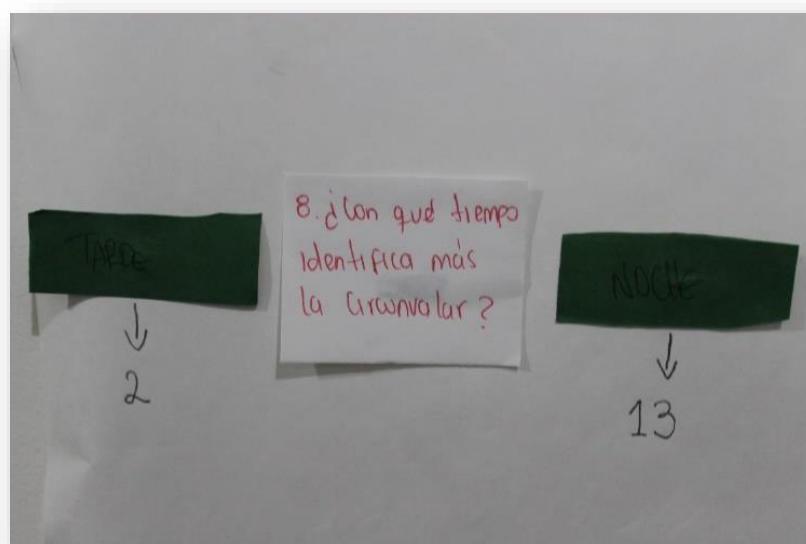 TARDE
2
8. ¿Con qué tiempo
identifica más
la Circunvalar?
NOCHE
13